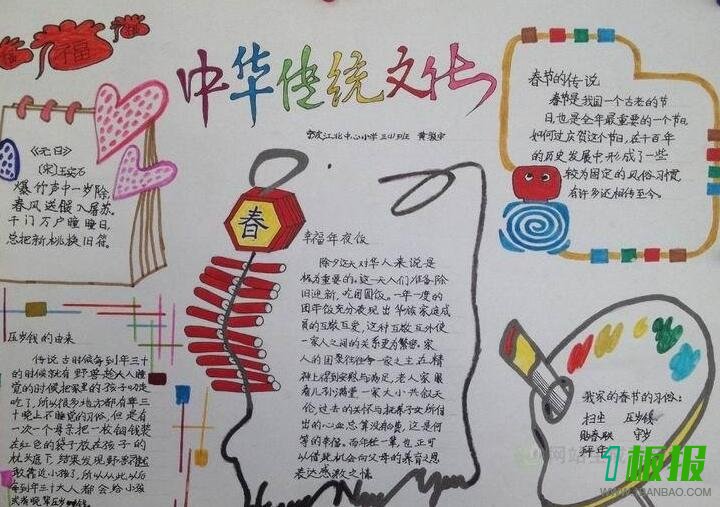 幸福
中华传统文化
宁波江北中心小学 三(4)班 黄骏宇
《元日》
〔宋〕王安石
爆竹声中一岁除,
春风送暖入屠苏。
千门万户曈曈日,
总把新桃换旧符。
春节的传说
春节是我国一个古老的节
日,也是全年最重要的一个节日,
如何过庆贺这个节日,在千百年
的历史发展中,形成了一些
较为固定的风俗习惯
有许多还相传至今。
春
幸福年夜饭
除夕这天对华人来说是
极为重要的,这一天人们准备除
旧迎新,吃团圆饭。一年一度的
团年饭充分表现出华族家庭成
员的互敬互爱,这种互敬互外使
一家人之间的关系更为紧密。家
人的团聚往往令一家之主在精
神上得到安慰与满足,老人家眼看
儿孙满堂,一家大小共叙天
伦,过去的关怀与抚养子女所付
出的心血总算没都费,这是何
等的幸福。而年轻一辈,也正可
以借此机会向父母的养育之恩
表达感激之情
压岁钱的由来
传说古时候每到年三十
的时候就有野兽趁大人睡
觉的时候把家里的孩子叼走
吃了,所以很多地方都有年三
十晚上不睡觉的习俗,但是有
一次一个母亲把一枚铜钱装
在红色的袋子放在孩子的
枕头底下,结果发现野兽不
敢靠近小孩了,所以从此以后
每到年三十大人都会给小孩
我家的春节的习俗:
扫尘 压岁钱
贴春联 守岁
拜年
Happy New Year
1板报
WWW.YIBANBAO.COM